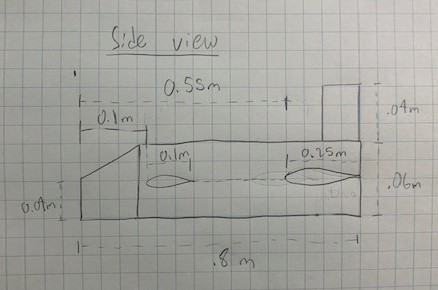 Side view
0.55m
0.1m
.04m
0.1m
0.25m
.06m
0.04m
.8 m